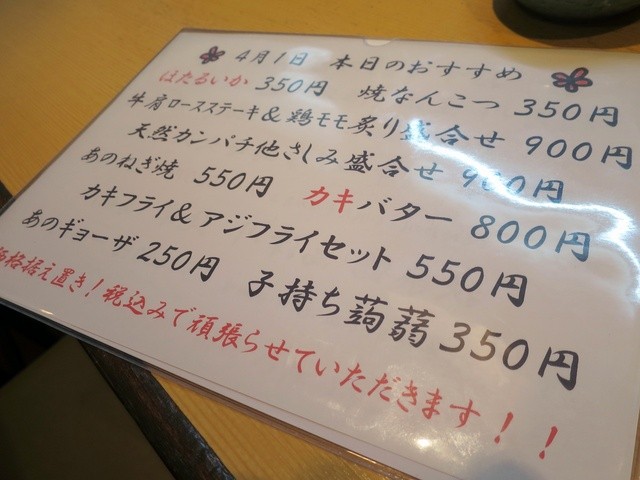 4月1日 本日のおすすめ
ほたるいか 350円 焼なんこつ 350円
牛肩ロースステーキ&鶏モモ炙り盛合せ 900円
天然カンパチ他さしみ盛合せ 900円
あのねぎ焼 550円 カキバター 800円
カキフライ&アジフライセット 550円
あのギョーザ 250円 子持ち蒟蒻 350円
価格据え置き!税込みで頑張らせていただきます!!